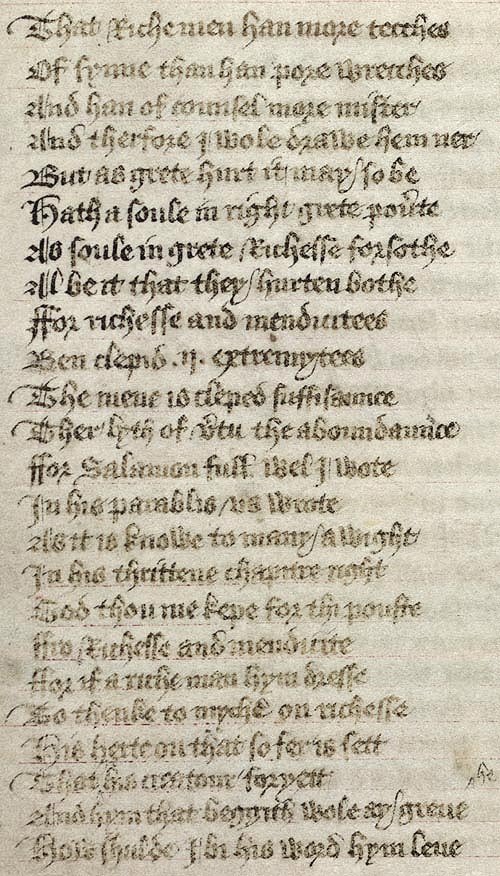 That Riche men han more tecches
Of synne than han pore wrecches
And han of counsel more mister
And therfore I wole drawe hem ner
But as grete hurt it may / so be
Hath a soule in right grete pou̔te
As soule in grete Richesse forsothe
Al be it that they / hurten bothe
Ffor richesse and mendicitees
Ben clepid .ii. extremytees
The mene is cleped suffisaunce
Ther lyth of v̔tu the aboundaunce
Ffor Salamon full wel I wote
In his parablis / us wrote
As it is knowe to many / a wight
In his thrittene chapitre right
God thou me kepe for thi pouste
Fro Richesse and mendicite
Ffor if a riche man hym dresse
To thenke to myche on richesse
His herte on that so fer is sett
That his creatour foryett
he
And hym that beggith wole ay / greue
How shulde I bi his word hym leue